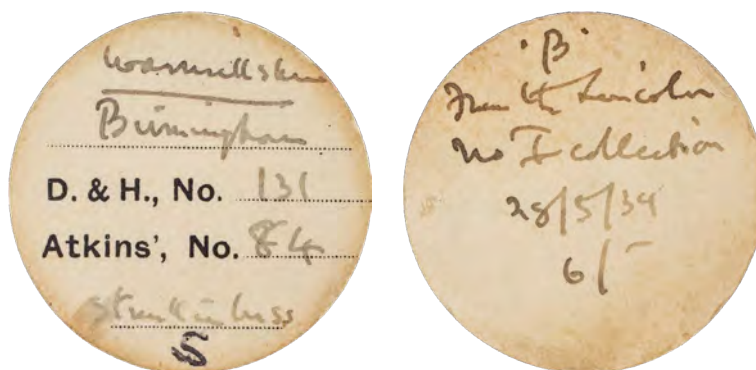 Warwickshire
Birmingham
D. & H., No. 131
Atkins', No. 84
Struck in brass
S
'B'
From the Lincoln
No I collection
28/5/39
6/-